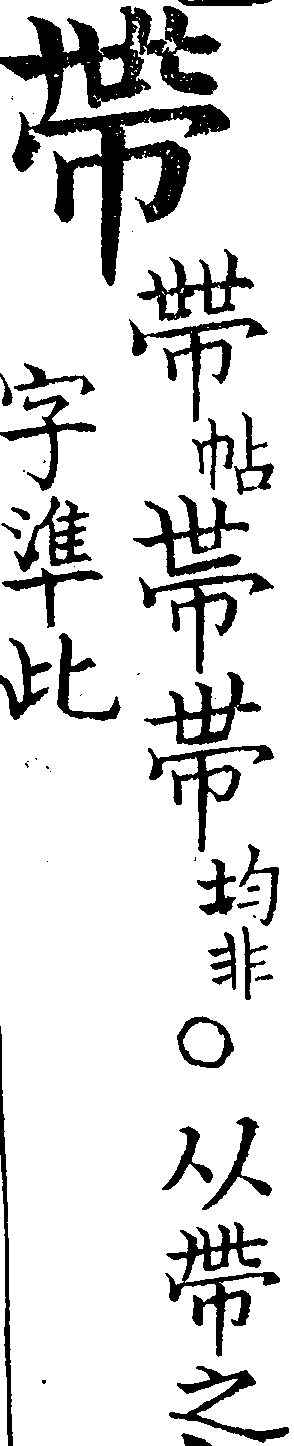 帶
帶帖帯帯均非○从帶之
字準此